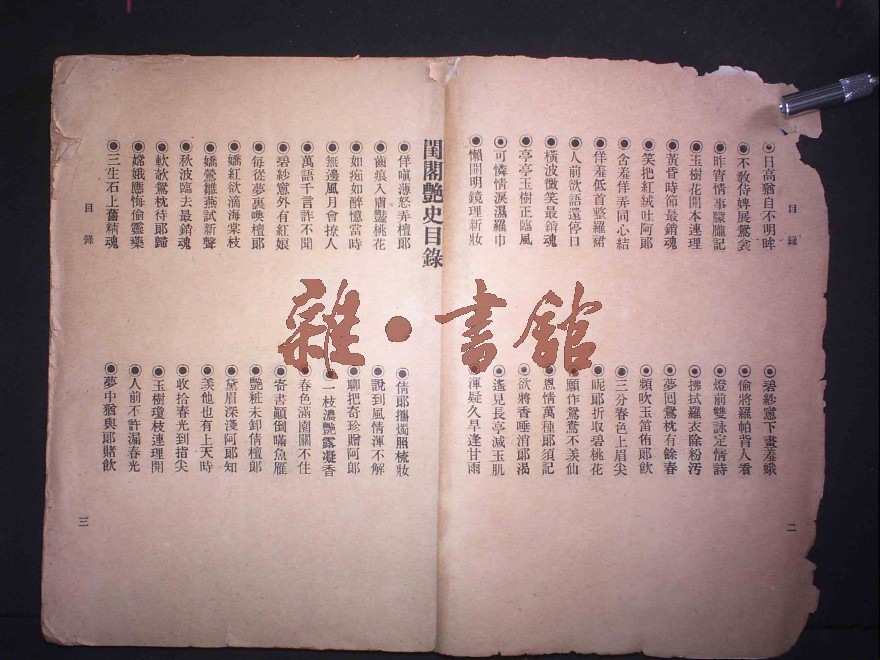 目錄
日高猶自不明眸
不敎侍婢展鴛衾
昨宵情事朦朧記
玉樹花開本連理
黃昏時節最銷魂
笑把紅絨吐阿郎
含羞佯弄同心結
佯羞低首整羅裙
人前欲語還停口
橫波微笑最銷魂
亭亭玉樹正臨風
可憐情淚濕羅巾
懶開明鏡理新妝
碧紗窓下畫羞蛾
偷將羅帕背人看
燈前雙詠定情詩
拂拭羅衣除粉汚
夢回鴛枕有餘春
頻吹玉笛侑郎飲
三分春色上眉尖
呢郎折取碧桃花
願作鴛鴦不羨仙
恩情萬種郎須記
欲將香唾消郎渴
遙見長亭減玉肌
渾疑久旱逢甘雨
二
閨閣艷史目錄
佯嗔薄怒弄檀郎
齒痕入膚豔桃花
如痴如醉憶當時
無邊風月會撩人
萬語千言詐不聞
碧紗窓外有紅娘
每從夢裏喚檀郎
嬌紅欲滴海棠枝
嬌鶯雛燕試新聲
秋波臨去最銷魂
軟欹鴛枕待郎歸
嫦娥應悔偷靈藥
三生石上舊精魂
倩郎攜燭照梳妝
說到風情渾不解
聊把奇珍贈阿郎
一枝濃艷露凝香
春色滿園關不住
寄書顚倒嘱魚雁
艷粧未卸倩檀郎
黛眉深淺阿郎知
羨他也有上天時
收拾春光到指尖
玉樹瓊枝連理開
人前不許漏春光
夢中猶與郎賭飲
目錄
三
雜•書館